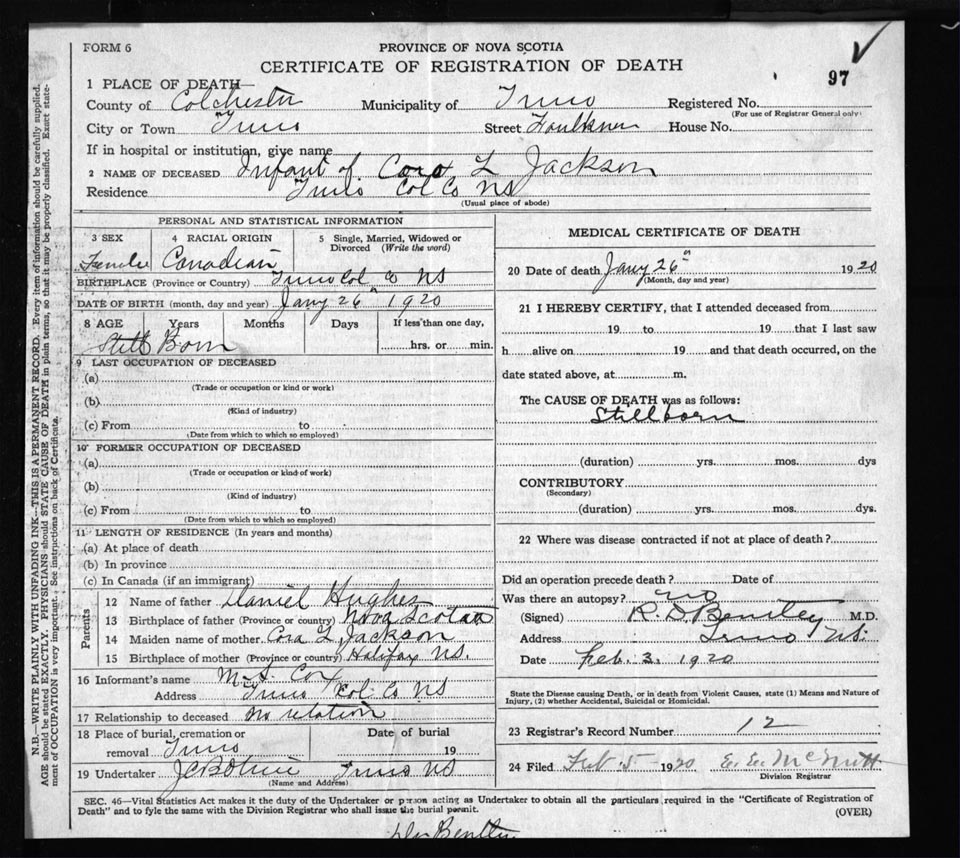 FORM 6
PROVINCE OF NOVA SCOTIA
CERTIFICATE OF REGISTRATION OF DEATH
97
1 PLACE OF DEATH—
County of Colchester Municipality of Truro Registered No.
(For use of Registrar General only)
City or Town Truro Street Faulkner House No.
If in hospital or institution, give name
2 NAME OF DECEASED Infant of Cora L Jackson
Residence Truro Col Co NS
(Usual place of abode)
PERSONAL AND STATISTICAL INFORMATION
3 SEX 4 RACIAL ORIGIN 5 Single, Married, Widowed or Divorced (Write the word)
Female Canadian
BIRTHPLACE (Province or Country) Truro Col Co NS
DATE OF BIRTH (month, day and year) Jany 26" 1920
8 AGE Years Months Days If less than one day,
Still Born hrs. or min.
9 LAST OCCUPATION OF DECEASED
(a)
(Trade or occupation or kind or work)
(b)
(Kind of industry)
(c) From to
(Date from which to which so employed)
10 FORMER OCCUPATION OF DECEASED
(a)
(Trade or occupation or kind of work)
(b)
(Kind of industry)
(c) From to
(Date from which to which so employed)
11 LENGTH OF RESIDENCE (In years and months)
(a) At place of death
(b) In province
(c) In Canada (if an immigrant)
Parents
12 Name of father Daniel Hughes
13 Birthplace of father (Province or country) Nova Scotia
14 Maiden name of mother Cora L Jackson
15 Birthplace of mother (Province or country) Halifax NS.
16 Informant's name Cox
Address Truro Col Co NS
17 Relationship to deceased No relation
18 Place of burial, cremation or removal Truro Date of burial 19
19 Undertaker Truro NS
(Name and Address)
MEDICAL CERTIFICATE OF DEATH
20 Date of death Jany 26" 1920
(Month, day and year)
21 I HEREBY CERTIFY, that I attended deceased from
19 to 19 that I last saw
h alive on 19 and that death occurred, on the
date stated above, at m.
The CAUSE OF DEATH was as follows:
Stillborn
(duration) yrs. mos. dys
CONTRIBUTORY
(Secondary)
(duration) yrs. mos. dys.
22 Where was disease contracted if not at place of death?
Did an operation precede death? Date of
Was there an autopsy? no
(Signed) R. D Bentley M.D.
Address Truro NS.
Date Feb. 3. 1920
State the Disease causing Death, or in death from Violent Causes, state (1) Means and Nature of
Injury, (2) whether Accidental, Suicidal or Homicidal.
23 Registrar's Record Number 12
24 Filed Feb 5 1920
Division Registrar
SEC. 46—Vital Statistics Act makes it the duty of the Undertaker or person acting as Undertaker to obtain all the particulars required in the "Certificate of Registration of
Death" and to fyle the same with the Division Registrar who shall issue the burial permit.
(OVER)
Dr Bentley
N.B.—WRITE PLAINLY WITH UNFADING INK—THIS IS A PERMANENT RECORD. Every item of information should be carefully supplied.
AGE should be stated EXACTLY. PHYSICIANS should STATE CAUSE OF DEATH in plain terms, so that it may be properly classified. Exact state-
ment of OCCUPATION is very important. See instructions on back of Certificate.